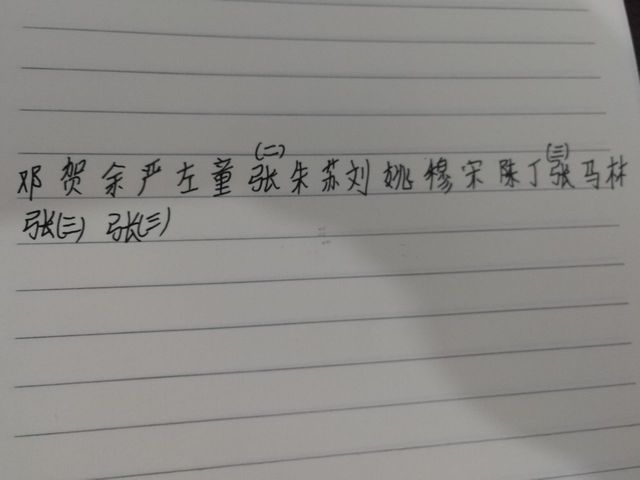 邓 贺 余 严 左 童 张(二) 朱 苏 刘 姚 穆 宋 陈 丁 张(三) 马 林
张(三) 张(三)